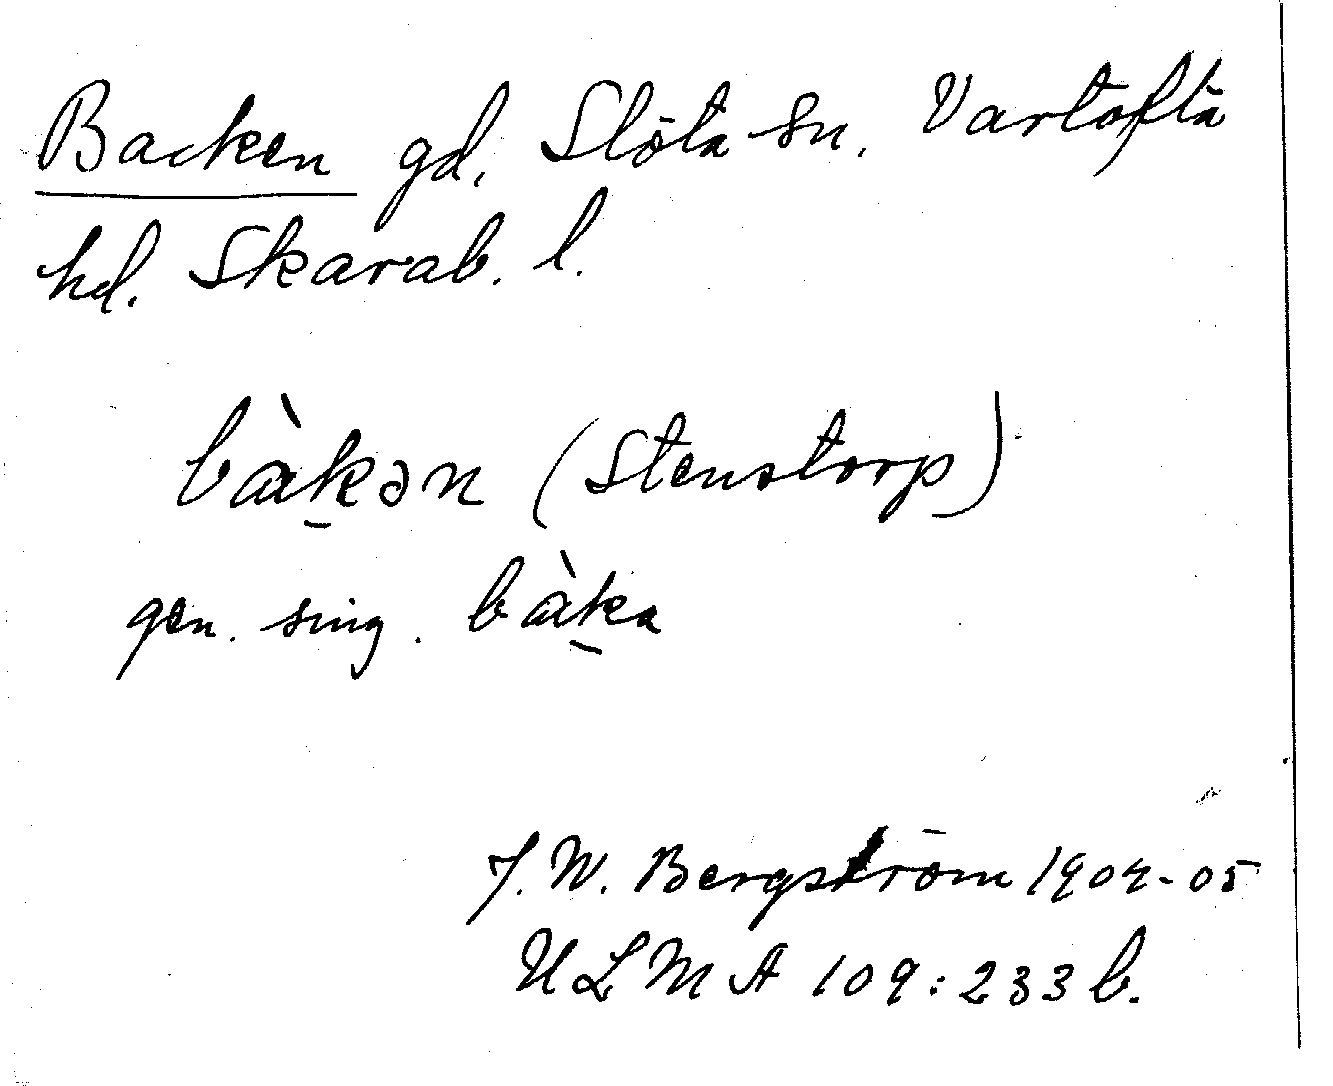 Backen gd. Slöta sn. Vartofta
hd. Skarab. l.
bàk̠ən (Stenstorp)
gen. sing. bàk̠a
J. W. Bergström 1904-05
ULMA 109:233 b.